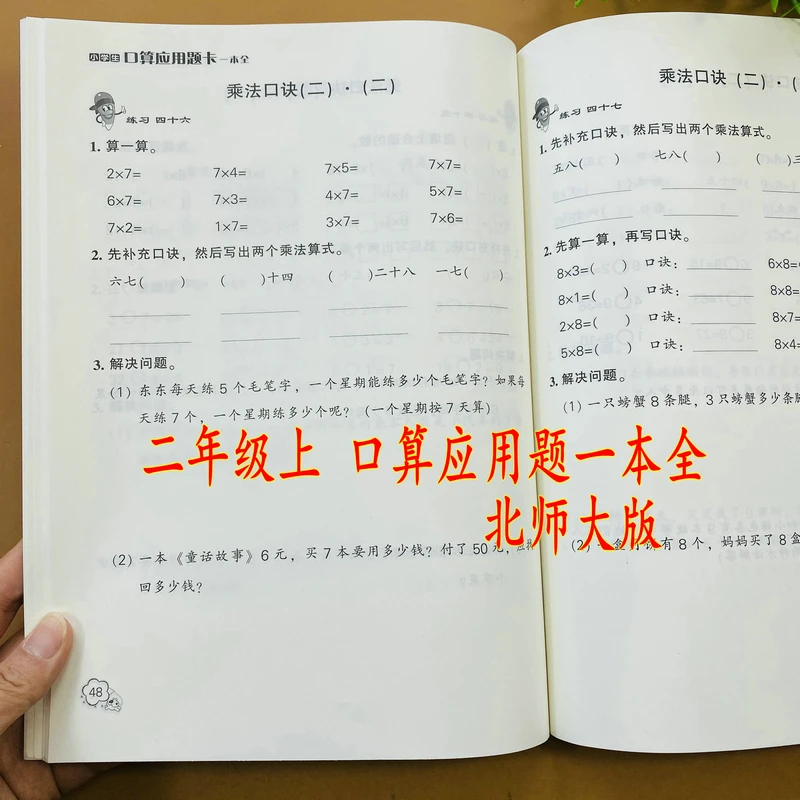 小学生口算应用题卡一本全
乘法口诀(二)·(二)
练习 四十六
1. 算一算。
2×7= 7×4= 7×5= 7×7=
6×7= 7×3= 4×7= 5×7=
7×2= 1×7= 3×7= 7×6=
2. 先补充口诀，然后写出两个乘法算式。
六七( ) ( )十四 ( )二十八 一七( )
3. 解决问题。
(1) 东东每天练5个毛笔字，一个星期能练多少个毛笔字？如果每
天练7个，一个星期练多少个呢？（一个星期按7天算）
(2) 一本《童话故事》6元，买7本要用多少钱？付了50元，应找
回多少钱？
48
乘法口诀(二)·(
练习 四十七
1. 先补充口诀，然后写出两个乘法算式。
五八( ) 七八( ) ( )三
2. 先算一算，再写口诀。
8×3=( ) 口诀： 6×8=
8×1=( ) 口诀： 8×8=
2×8=( ) 口诀： 8×7=
5×8=( ) 口诀： 8×4=
3. 解决问题。
(1) 一只螃蟹8条腿，3只螃蟹多少条腿
(2) 一盒月饼有8个，妈妈买了8盒
二年级上 口算应用题一本全
北师大版